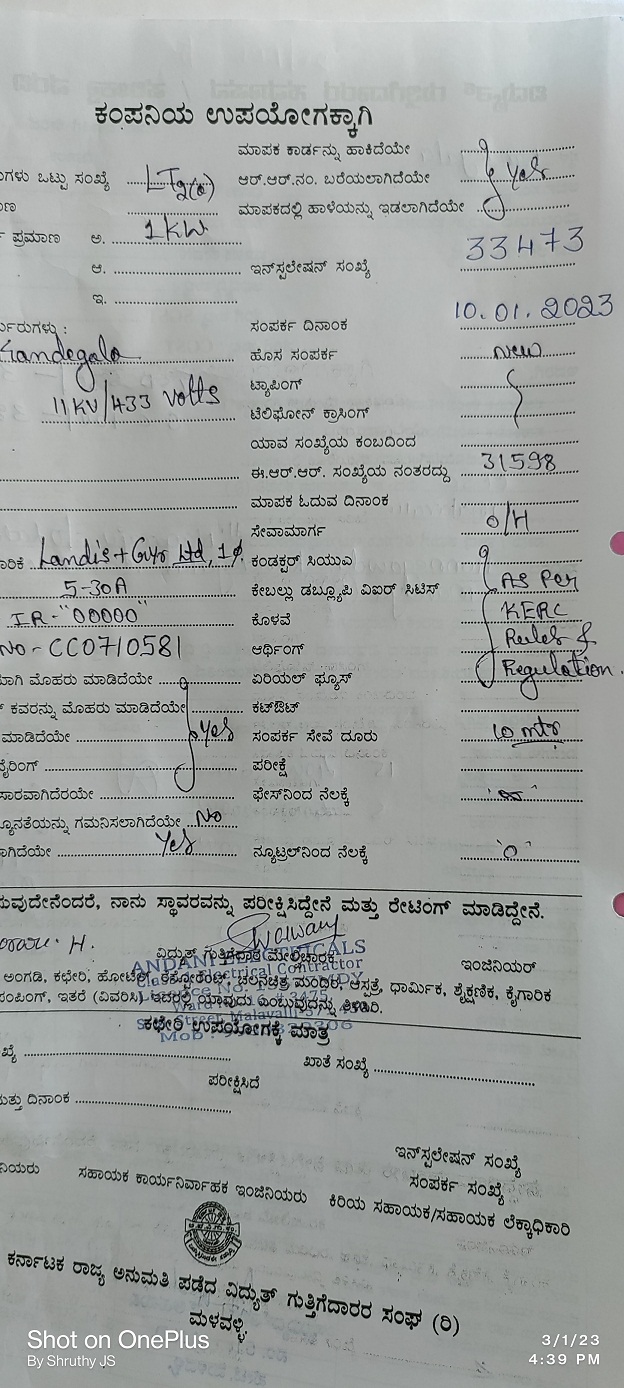 ಕಂಪನಿಯ ಉಪಯೋಗಕ್ಕಾಗಿ
ಮಾಪಕ ಕಾರ್ಡನ್ನು ಹಾಕಿದೆಯೇ
ಗಳು ಒಟ್ಟು ಸಂಖ್ಯೆ LT2(a) ಆರ್.ಆರ್.ನಂ. ಬರೆಯಲಾಗಿದೆಯೇ Yes
ಮಾಪಕದಲ್ಲಿ ಹಾಳೆಯನ್ನು ಇಡಲಾಗಿದೆಯೇ
ಪ್ರಮಾಣ ಅ. 1KW
ಆ. ಇನ್ಸ್ಪಲೇಷನ್ ಸಂಖ್ಯೆ 33473
ಇ.
ಸಂಪರ್ಕ ದಿನಾಂಕ 10.01.2023
ಹೊಸ ಸಂಪರ್ಕ New
ಟ್ಯಾಪಿಂಗ್
11KV/433 Volts ಟೆಲಿಫೋನ್ ಕ್ರಾಸಿಂಗ್
ಯಾವ ಸಂಖ್ಯೆಯ ಕಂಬದಿಂದ
ಈ.ಆರ್.ಆರ್. ಸಂಖ್ಯೆಯ ನಂತರದ್ದು 31598
ಮಾಪಕ ಓದುವ ದಿನಾಂಕ
ಸೇವಾಮಾರ್ಗ O/H
Landis + Gyr Ltd, 1φ. ಕಂಡಕ್ಟರ್ ಸಿಯುವಿ
5-30A ಕೇಬಲ್ಲು ಡಬ್ಲ್ಯೂಪಿ ವಿಐರ್ ಸಿಟಿಸ್ AS Per
IR-"00000" ಕೊಳವೆ KERC
NO-CC0710581 ಆರ್ಥಿಂಗ್ Rules &
ಮೊಹರು ಮಾಡಿದೆಯೇ ಏರಿಯಲ್ ಫ್ಯೂಸ್ Regulation.
ಕವರನ್ನು ಮೊಹರು ಮಾಡಿದೆಯೇ ಕಟ್ಔಟ್
ಮಾಡಿದೆಯೇ Yes ಸಂಪರ್ಕ ಸೇವೆ ದೂರು 10 mtr
ವೈರಿಂಗ್ ಪರೀಕ್ಷೆ
ಫೇಸ್‌ನಿಂದ ನೆಲಕ್ಕೆ
ಗಮನಿಸಲಾಗಿದೆಯೇ No
Yes ನ್ಯೂಟ್ರಲ್‌ನಿಂದ ನೆಲಕ್ಕೆ "0"
ನಾನು ಸ್ಥಾವರವನ್ನು ಪರೀಕ್ಷಿಸಿದ್ದೇನೆ ಮತ್ತು ರೇಟಿಂಗ್ ಮಾಡಿದ್ದೇನೆ.
ವಿದ್ಯುತ್ ಗುತ್ತಿಗೆದಾರ ಮೇಲಿಚಾರಕ ಇಂಜಿನಿಯರ್
ಅಂಗಡಿ, ಕಛೇರಿ, ಹೋಟೆಲ್, ರೆಸ್ಟೋರೆಂಟ್, ಚಲನಚಿತ್ರ ಮಂದಿರ, ಆಸ್ಪತ್ರೆ, ಧಾರ್ಮಿಕ, ಶೈಕ್ಷಣಿಕ, ಕೈಗಾರಿಕ
ಇತರೆ (ವಿವರಿಸಿ) ಇದರಲ್ಲಿ ಯಾವುದು ಎಂಬುವುದನ್ನು ತಿಳಿಸಿರಿ.
ಕಛೇರಿ ಉಪಯೋಗಕ್ಕೆ ಮಾತ್ರ
ಖಾತೆ ಸಂಖ್ಯೆ
ಪರೀಕ್ಷಿಸಿದೆ
ದಿನಾಂಕ
ಇನ್ಸ್ಪಲೇಷನ್ ಸಂಖ್ಯೆ
ಸಂಪರ್ಕ ಸಂಖ್ಯೆ
ಸಹಾಯಕ ಕಾರ್ಯನಿರ್ವಾಹಕ ಇಂಜಿನಿಯರು ಕಿರಿಯ ಸಹಾಯಕ/ಸಹಾಯಕ ಲೆಕ್ಕಾಧಿಕಾರಿ
ಕರ್ನಾಟಕ ರಾಜ್ಯ ಅನುಮತಿ ಪಡೆದ ವಿದ್ಯುತ್ ಗುತ್ತಿಗೆದಾರರ ಸಂಘ (ರಿ)
ಮಳವಳ್ಳಿ
Shot on OnePlus
By Shruthy JS
3/1/23
4:39 PM